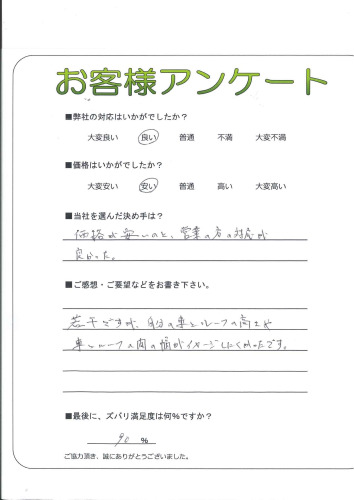 お客様アンケート
■弊社の対応はいかがでしたか？
大変良い 良い 普通 不満 大変不満
■価格はいかがでしたか？
大変安い 安い 普通 高い 大変高い
■当社を選んだ決め手は？
価格が安いのと、営業の方の対応が
良かった。
■ご感想・ご要望などをお書き下さい。
若干ですが、自分の車とルーフの高さや
車とルーフの間の幅がイメージしにくかったです。
■最後に、ズバリ満足度は何％ですか？
90 %
ご協力頂き、誠にありがとうございました。